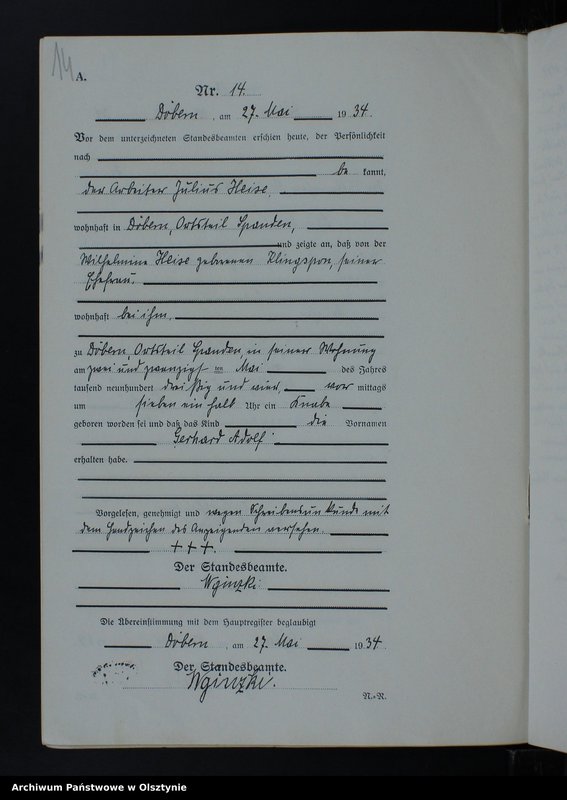 14
A.
Nr. 14.
Döbern, am 27. Mai 1934.
Vor dem unterzeichneten Standesbeamten erschien heute, der Persönlichkeit
nach
be kannt,
der Arbeiter Julius Heise,
wohnhaft in Döbern, Ortsteil Spanden,
und zeigte an, daß von der
Wilhelmine Heise geborenen Klingspon, seiner
Ehefrau,
wohnhaft bei ihm,
zu Döbern, Ortsteil Spanden, in seiner Wohnung
am zwei und zwanzigsten Mai des Jahres
tausend neunhundert dreißig und vier, vor mittags
um sieben ein halb Uhr ein Knabe
geboren worden sei und daß das Kind die Vornamen
Gerhard Adolf
erhalten habe.
Vorgelesen, genehmigt und wegen Schreibensunkunde mit
dem Handzeichen des Anzeigenden versehen.
+++
Der Standesbeamte.
Die Übereinstimmung mit dem Hauptregister beglaubigt
Döbern, am 27. Mai 1934.
Der Standesbeamte.
N.-R.
Archiwum Państwowe w Olsztynie